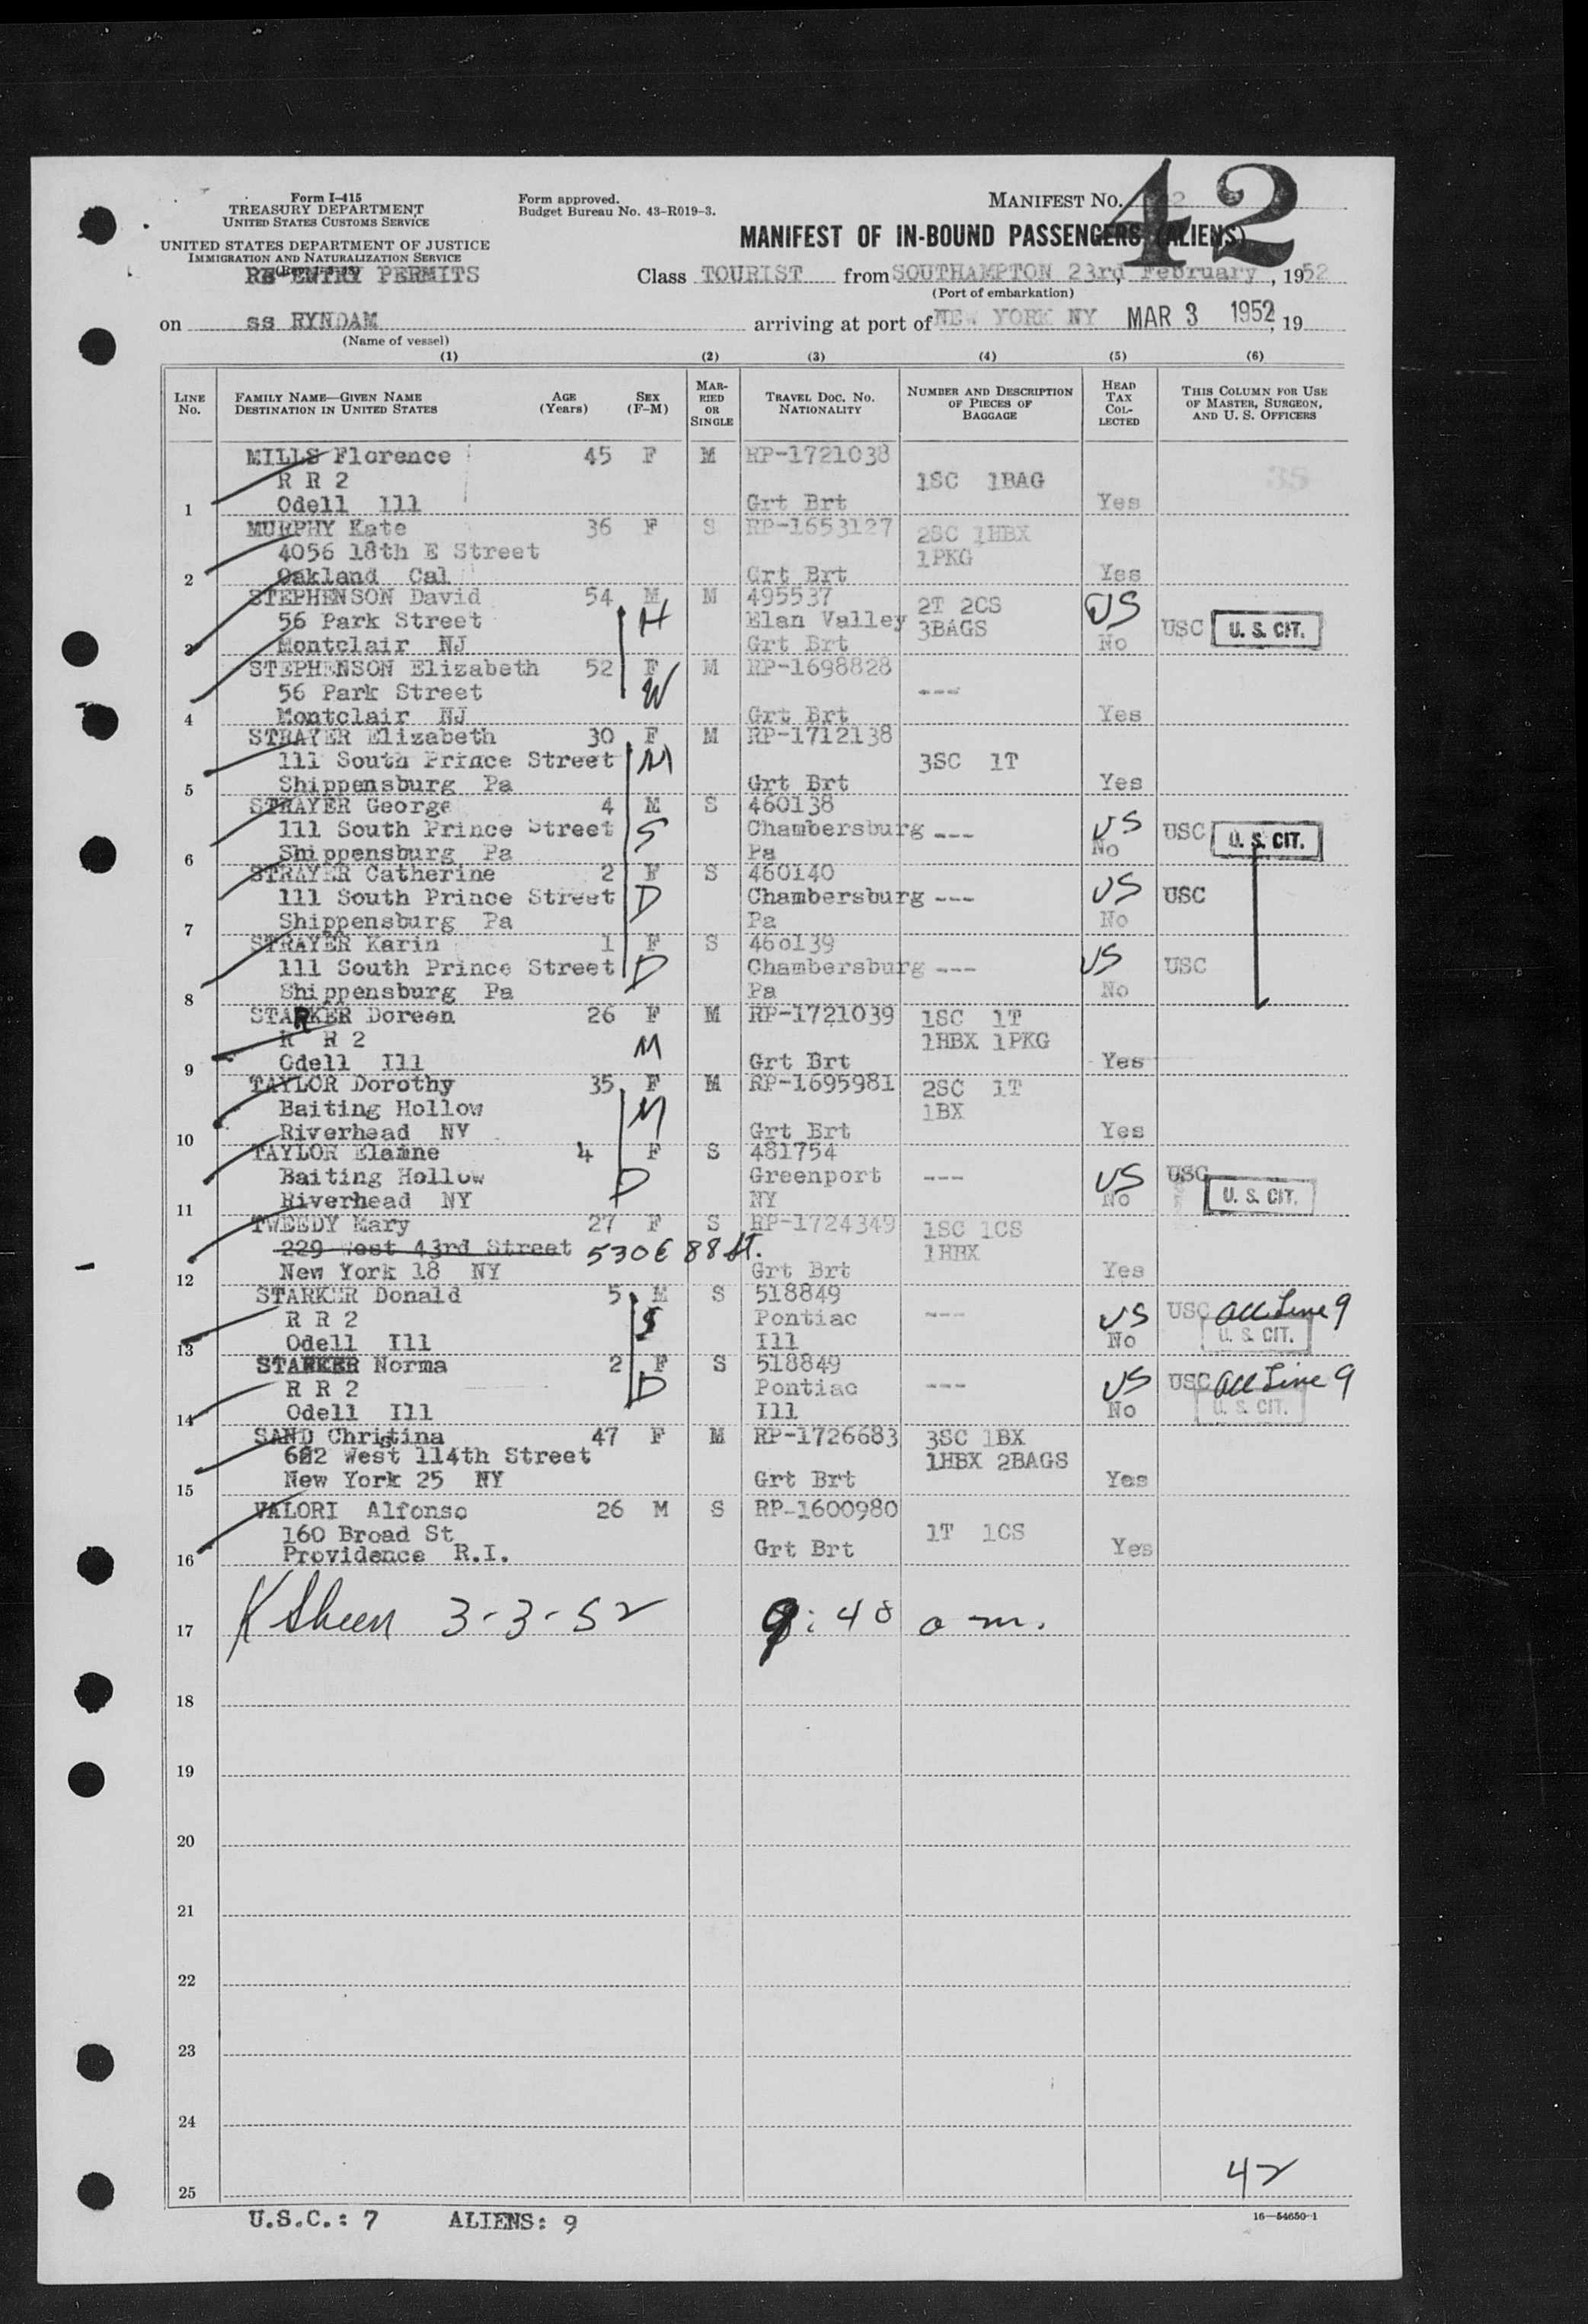 Form I-415
TREASURY DEPARTMENT
UNITED STATES CUSTOMS SERVICE
UNITED STATES DEPARTMENT OF JUSTICE
IMMIGRATION AND NATURALIZATION SERVICE
RE-ENTRY PERMITS
Form approved.
Budget Bureau No. 43-R019-3.
MANIFEST No. 42
MANIFEST OF IN-BOUND PASSENGERS (ALIENS)
Class TOURIST from SOUTHAMPTON 23rd, February, 1952
(Port of embarkation)
on ss RYNDAM arriving at port of NEW YORK NY MAR 3 1952, 19
(Name of vessel)
(1) (2) (3) (4) (5) (6)
LINE No. FAMILY NAME—GIVEN NAME DESTINATION IN UNITED STATES AGE (Years) SEX (F-M) MARRIED OR SINGLE TRAVEL DOC. NO. NATIONALITY NUMBER AND DESCRIPTION OF PIECES OF BAGGAGE HEAD TAX COLLECTED THIS COLUMN FOR USE OF MASTER, SURGEON, AND U. S. OFFICERS
MILLS Florence 45 F M RP-1721038
R R 2 1SC 1BAG 35
1 Odell Ill Grt Brt Yes
MURPHY Kate 36 F S RP-1653127 2SC 1HBX
4056 18th E Street 1PKG
2 Oakland Cal Grt Brt Yes
STEPHENSON David 54 M M 495537 2T 2CS US
56 Park Street H Elan Valley 3BAGS USC U. S. CIT.
3 Montclair NJ Grt Brt No
STEPHENSON Elizabeth 52 F M RP-1698828
56 Park Street W ---
4 Montclair NJ Grt Brt Yes
STRAYER Elizabeth 30 F M RP-1712138
111 South Prince Street M 3SC 1T
5 Shippensburg Pa Grt Brt Yes
STRAYER George 4 M S 460138
111 South Prince Street S Chambersburg --- US USC U. S. CIT.
6 Shippensburg Pa Pa No
STRAYER Catherine 2 F S 460140
111 South Prince Street D Chambersburg --- US USC
7 Shippensburg Pa Pa No
STRAYER Karin 1 F S 460139
111 South Prince Street D Chambersburg --- US USC
8 Shippensburg Pa Pa No
STARKER Doreen 26 F M RP-1721039 1SC 1T
R R 2 M 1HBX 1PKG
9 Odell Ill Grt Brt Yes
TAYLOR Dorothy 35 F M RP-1695981 2SC 1T
Baiting Hollow M 1BX
10 Riverhead NY Grt Brt Yes
TAYLOR Elaine 4 F S 481754
Baiting Hollow D Greenport --- US USC
11 Riverhead NY NY No U. S. CIT.
TWEEDY Mary 27 F S RP-1724349 1SC 1CS
229 West 43rd Street 530 E 88 St. 1HBX
12 New York 18 NY Grt Brt Yes
STARKER Donald 5 M S 518849
R R 2 S Pontiac --- US USC acc Line 9
13 Odell Ill Ill No U. S. CIT.
STARKER Norma 2 F S 518849
R R 2 D Pontiac --- US USC acc Line 9
14 Odell Ill Ill No U. S. CIT.
SAND Christina 47 F M RP-1726683 3SC 1BX
622 West 114th Street 1HBX 2BAGS
15 New York 25 NY Grt Brt Yes
VALORI Alfonso 26 M S RP-1600980
160 Broad St 1T 1CS
16 Providence R.I. Grt Brt Yes
17 K Sheen 3-3-52 9:48 a m.
18
19
20
21
22
23
24
25 42
U.S.C.: 7 ALIENS: 9
16—54650-1